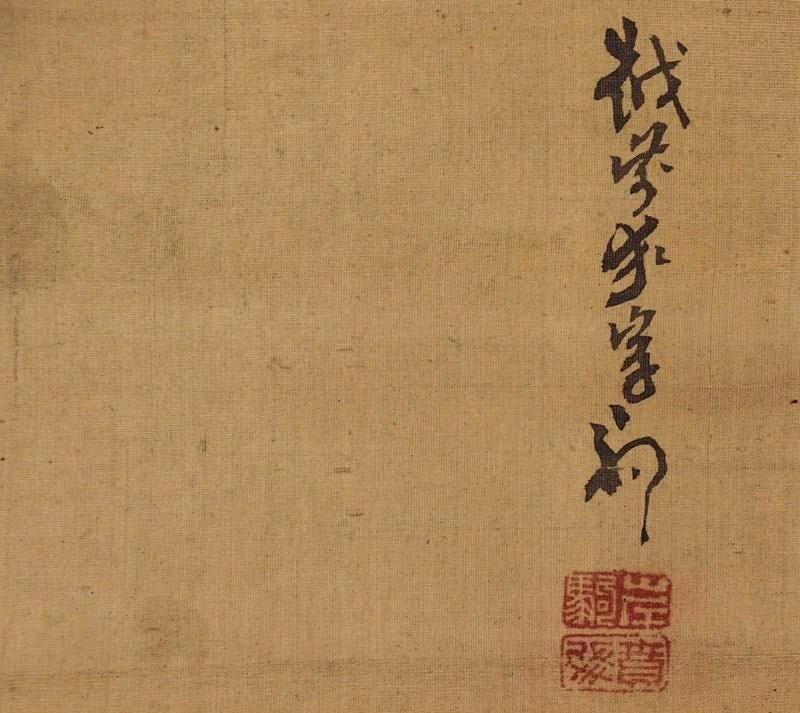 越前 岸駒
岸駒
賁然